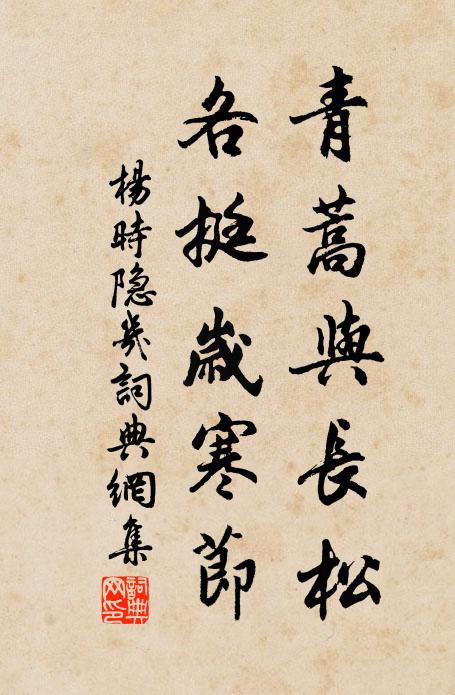 青蒿與長松
各挺歲寒節
楊時隐几詞典網集
詞典網印